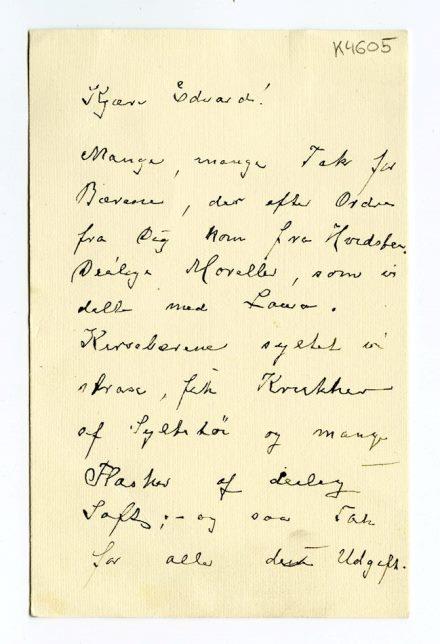 K4605
Kjære Edvard!
Mange, mange Tak for
Bærene, der efter Ordre
fra Dig kom fra Hvidsten.
Deilige Moreller, som vi
delte med Laura.
Kirsebærene syltet vi
strax, fik Krukker
af Syltetöi og mange
Flasker af deilig
Saft; – og saa Tak
for alle Udgift.